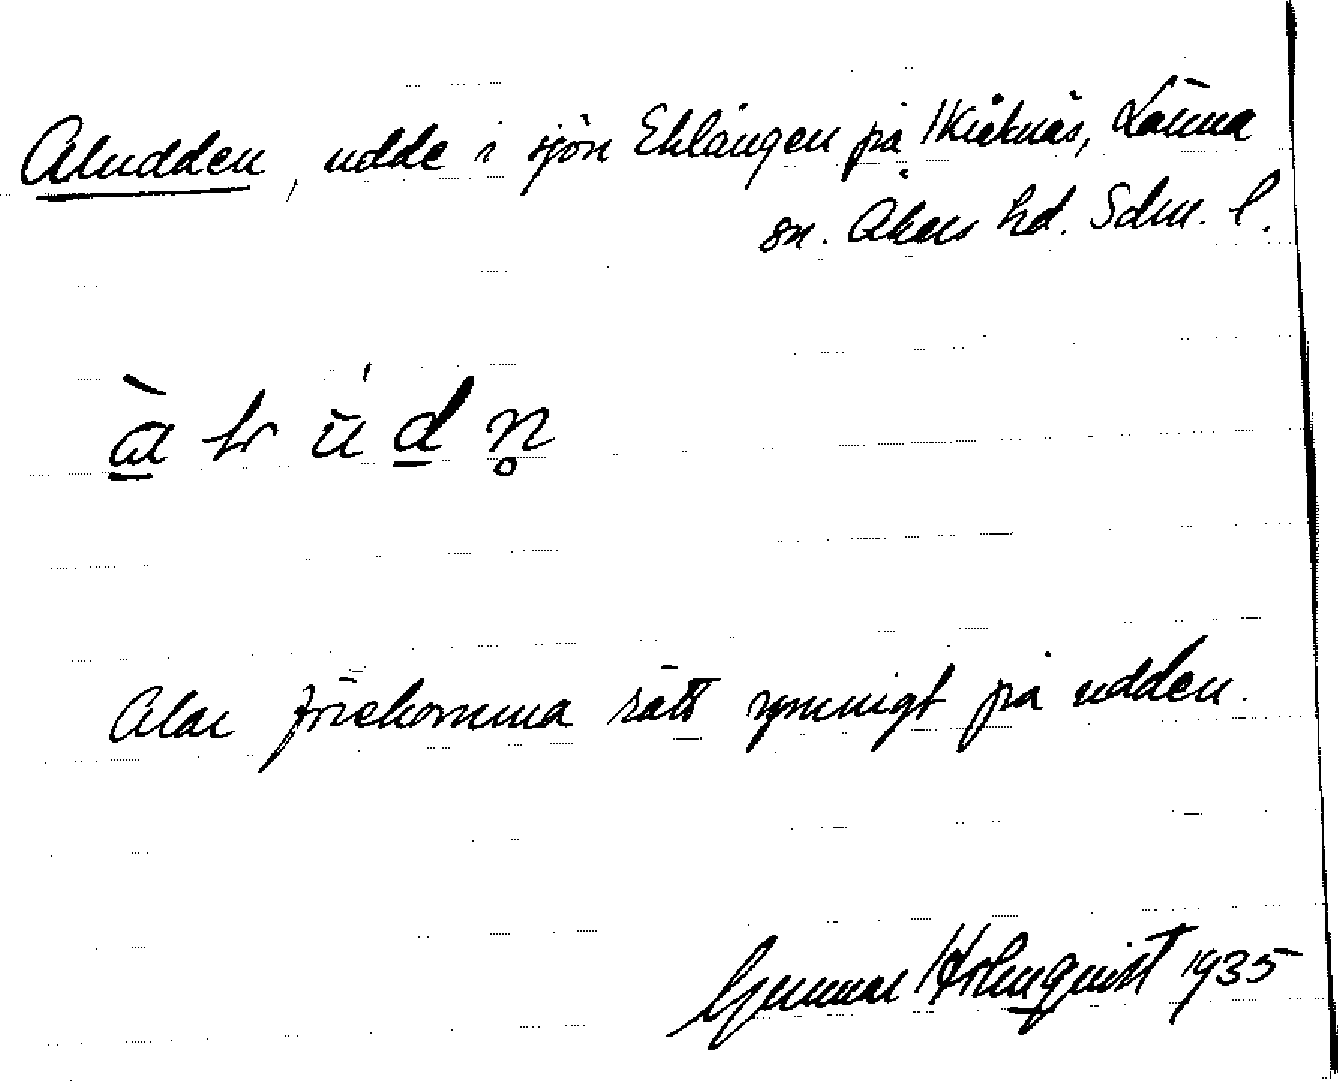 Aludden, udde i sjön Eklången på Kråknäs, Länna
sn. Åkers hd. Sdm. l.
Alar förekomma rätt ymnigt på udden.
Gunnar Holmquist 1935